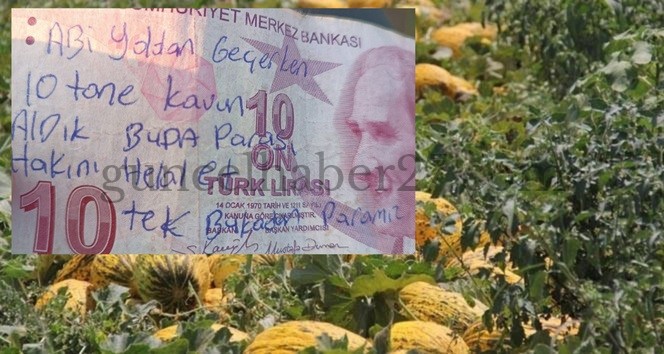 CUMHURİYET MERKEZ BANKASI
ABi Yoldan Geçerken
10 tane kavun
Aldık BUDA Parası
Hakını Helal et
10
ON
TÜRK LİRASI
14 OCAK 1970 TARİH VE 1211 SAYILI
KANUNA GÖRE ÇIKARILMIŞTIR.
BAŞKAN BAŞKAN YARDIMCISI
10
tek Bukadar Paramız